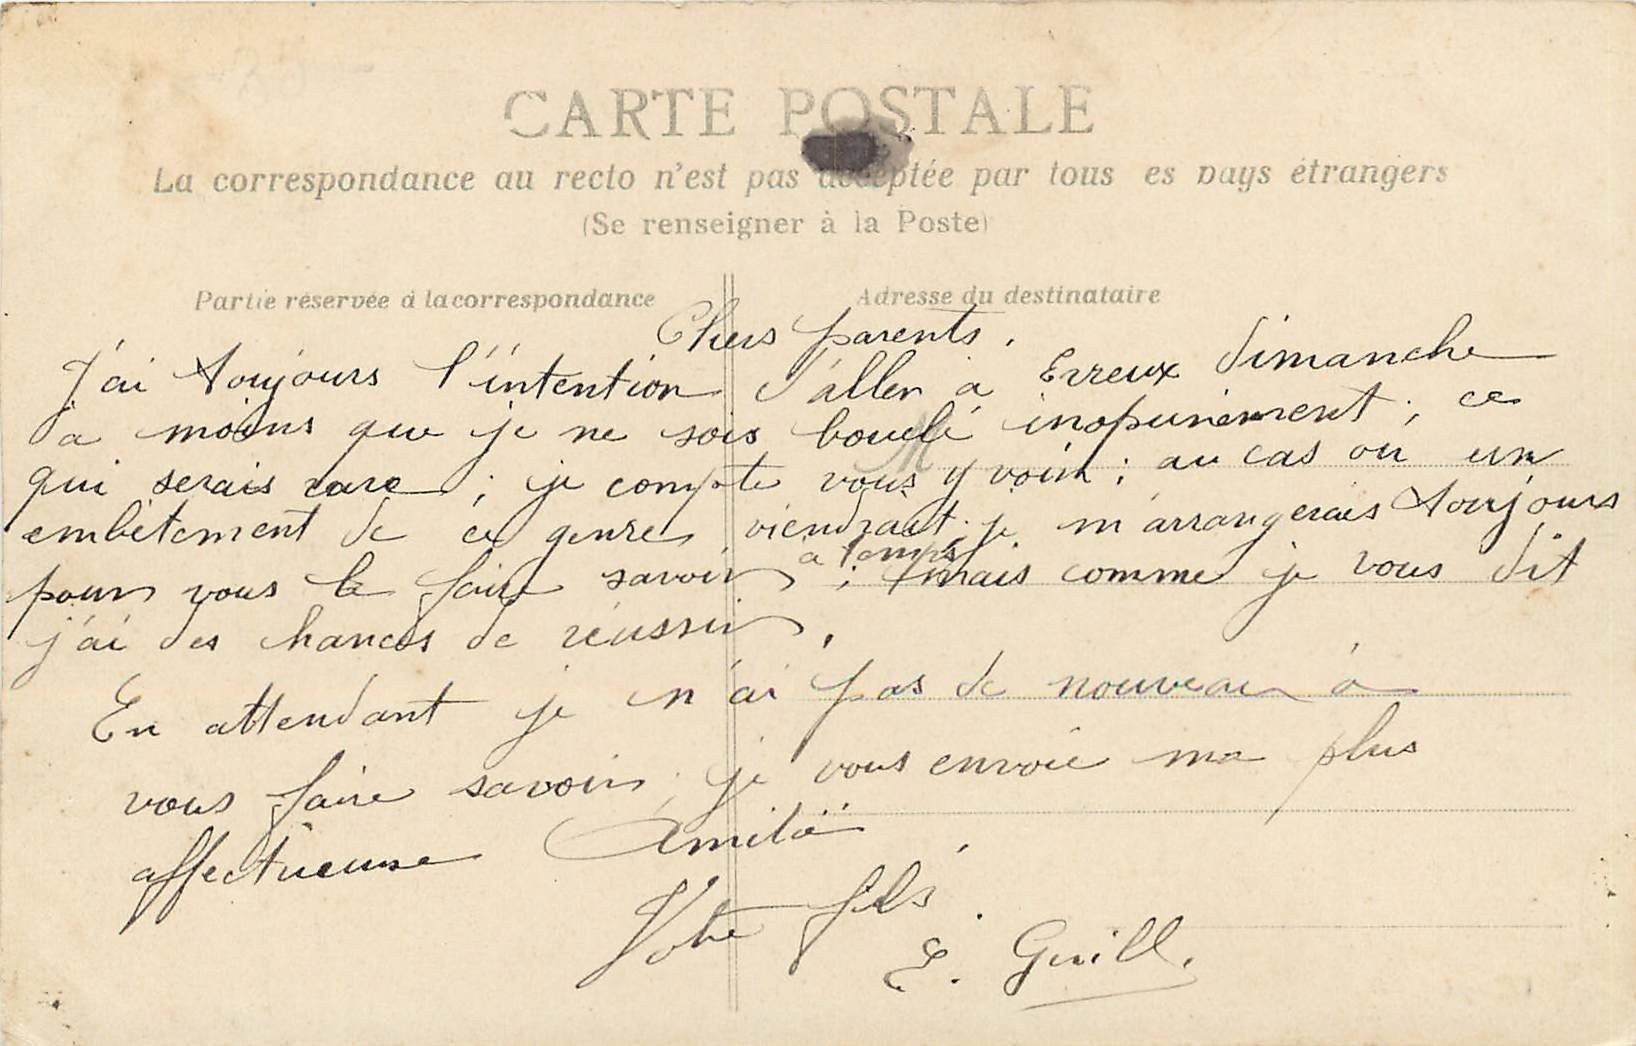 CARTE POSTALE
La correspondance au recto n'est pas acceptée par tous es pays étrangers
(Se renseigner à la Poste)
Partie réservée à la correspondance
Adresse du destinataire
Chers parents.
J'ai toujours l'intention d'aller à Evreux dimanche
à moins que je ne sois bouclé inopunément ; ce
qui serais rare ; je compte vous y voir ; au cas où un
embêtement de ce genre viendrait je m'arrangerais toujours
pour vous le faire savoir à temps ; mais comme je vous dit
j'ai des chances de réussir.
En attendant je n'ai pas de nouveau à
vous faire savoir, je vous envoie ma plus
affectueuse Amitié
Votre fils.
E. Guill.